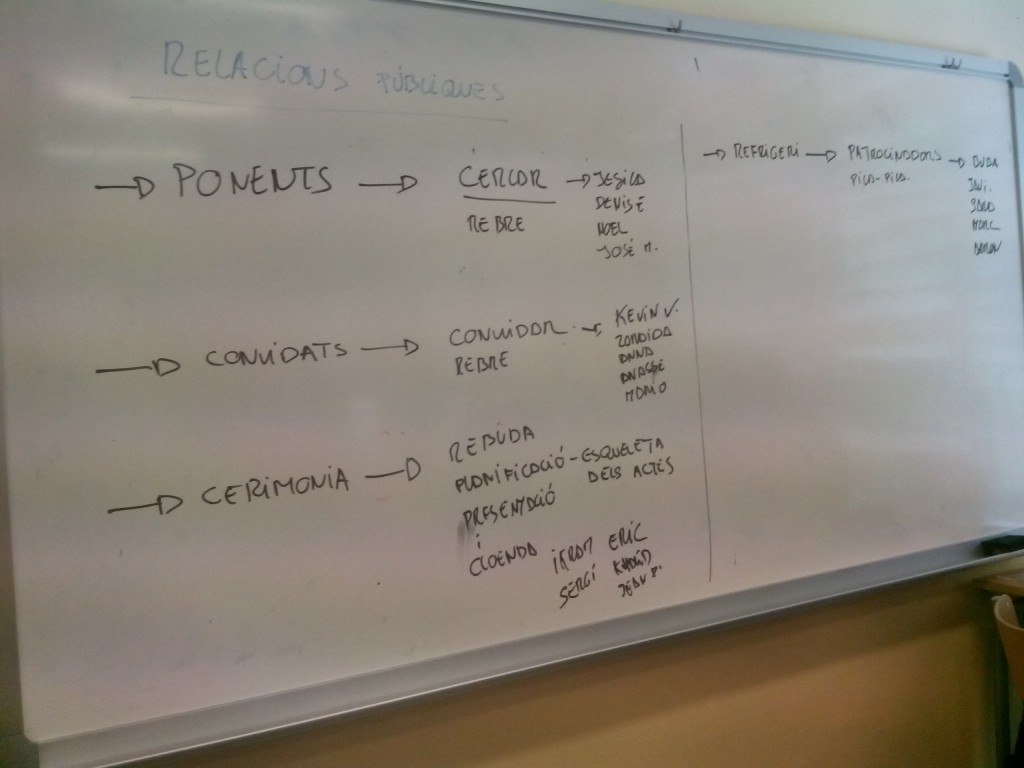 RELACIONS PÚBLIQUES
PONENTS CERCAR JESICA
REBRE DENISE
NOEL
JOSÉ M.
CONVIDATS CONVIDAR KEVIN V.
REBRE ZORAIDA
ANNA
MOMO
CERIMONIA REBUDA
PLANIFICACIÓ - ESQUELETA
DELS ACTES
PRESENTACIÓ
i
CLOENDA IKRAM ERIC
SERGI KHALID
REFRIGERI PATROCINADORS DUDA
PICA-PICA. JAVI.
MARC